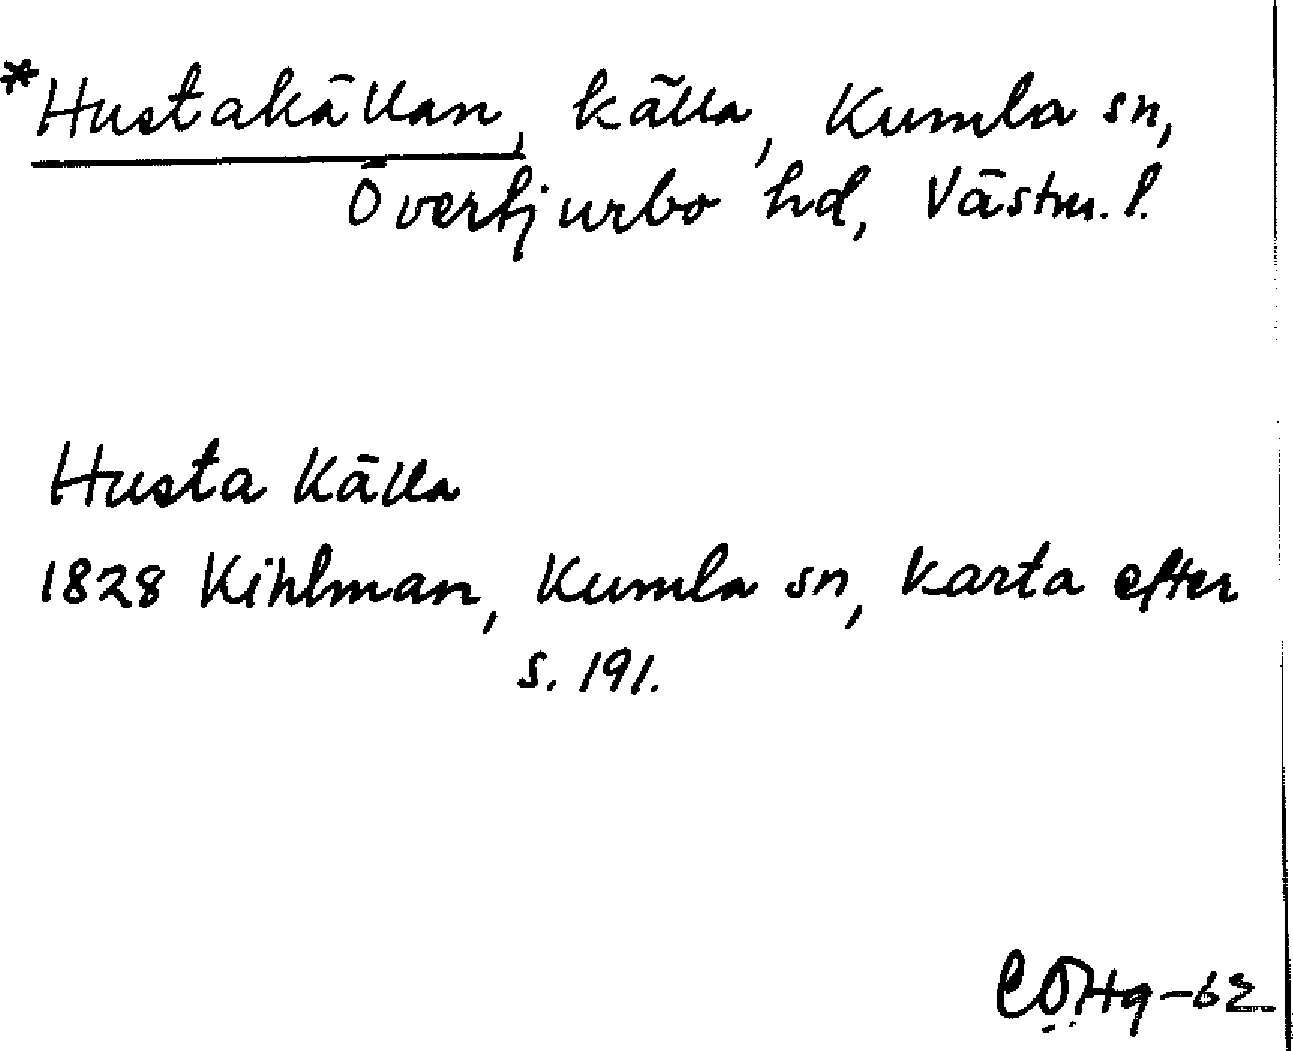 *Hustakällan, källa, Kumla sn,
Övertjurbo hd, Västm. l.
Husta Källa
1828 Kihlman, Kumla sn, karta efter
s. 191.